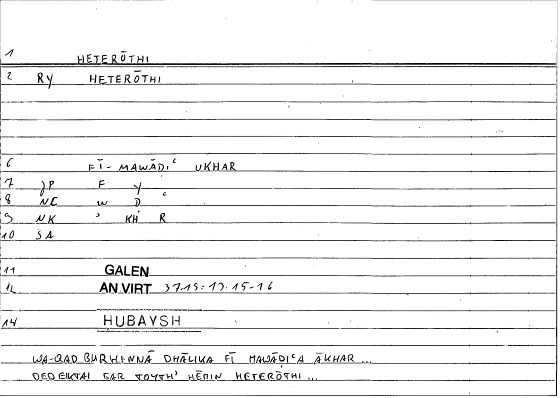 1 HETERŌTHI
2 RY HETERŌTHI
6 FĪ- MAWĀḌIʿ UKHAR
7 JP F Y
8 NC W Ḍ ʿ
9 NK ʾ KH R
10 SA
11 GALEN
12 AN.VIRT 3715=17.15-16
14 HUBAYSH
WA-QAD BURHINNĀ DHĀLIKA FĪ MAWĀḌIʿA ĀKHAR ...
DEDEIKTAI GAR TOYTH' HĒMIN HETERŌTHI ...